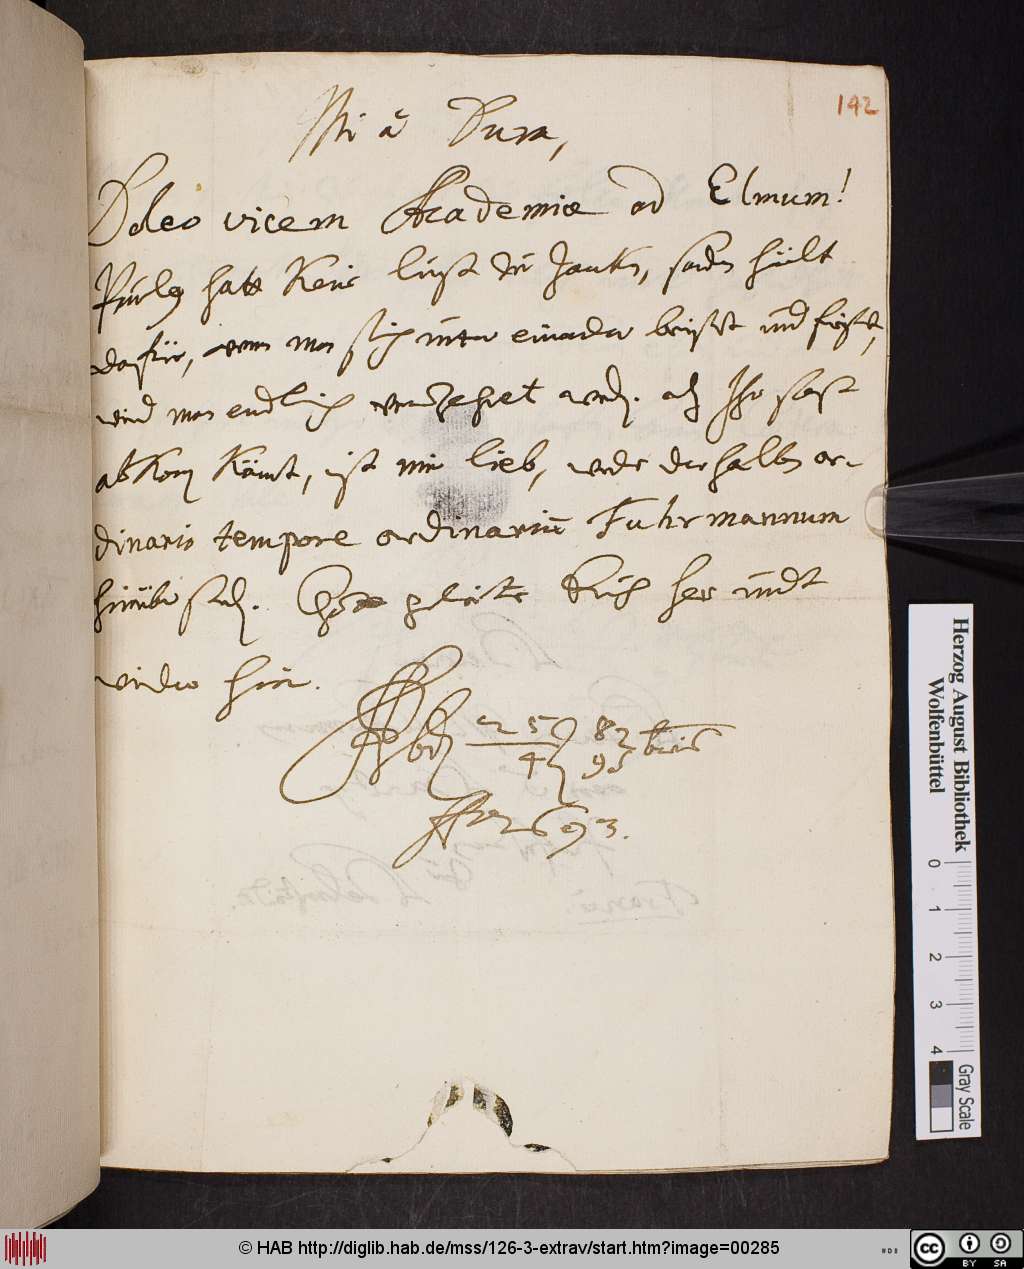 142
Mi à Dura,
Doleo vicem Academiæ ad Elmum!
hatt Keine lust zu Zanken, sondern hielt
dafür, wenn man sich unter einander beisset und frisset,
wird man endlich verzehret werden. Ihr fast
abkom̄en Könnt, ist mir lieb, werde derhalben or-
dinario tempore ordinariū Fuhrmannum
hinüber senden. Gott geleite Euch her undt
wieder hin.
25
4
82
95
1693.
Herzog August Bibliothek
Wolfenbüttel
0 1 2 3 4
Gray Scale
© HAB http://diglib.hab.de/mss/126-3-extrav/start.htm?image=00285
HAB
cc BY SA